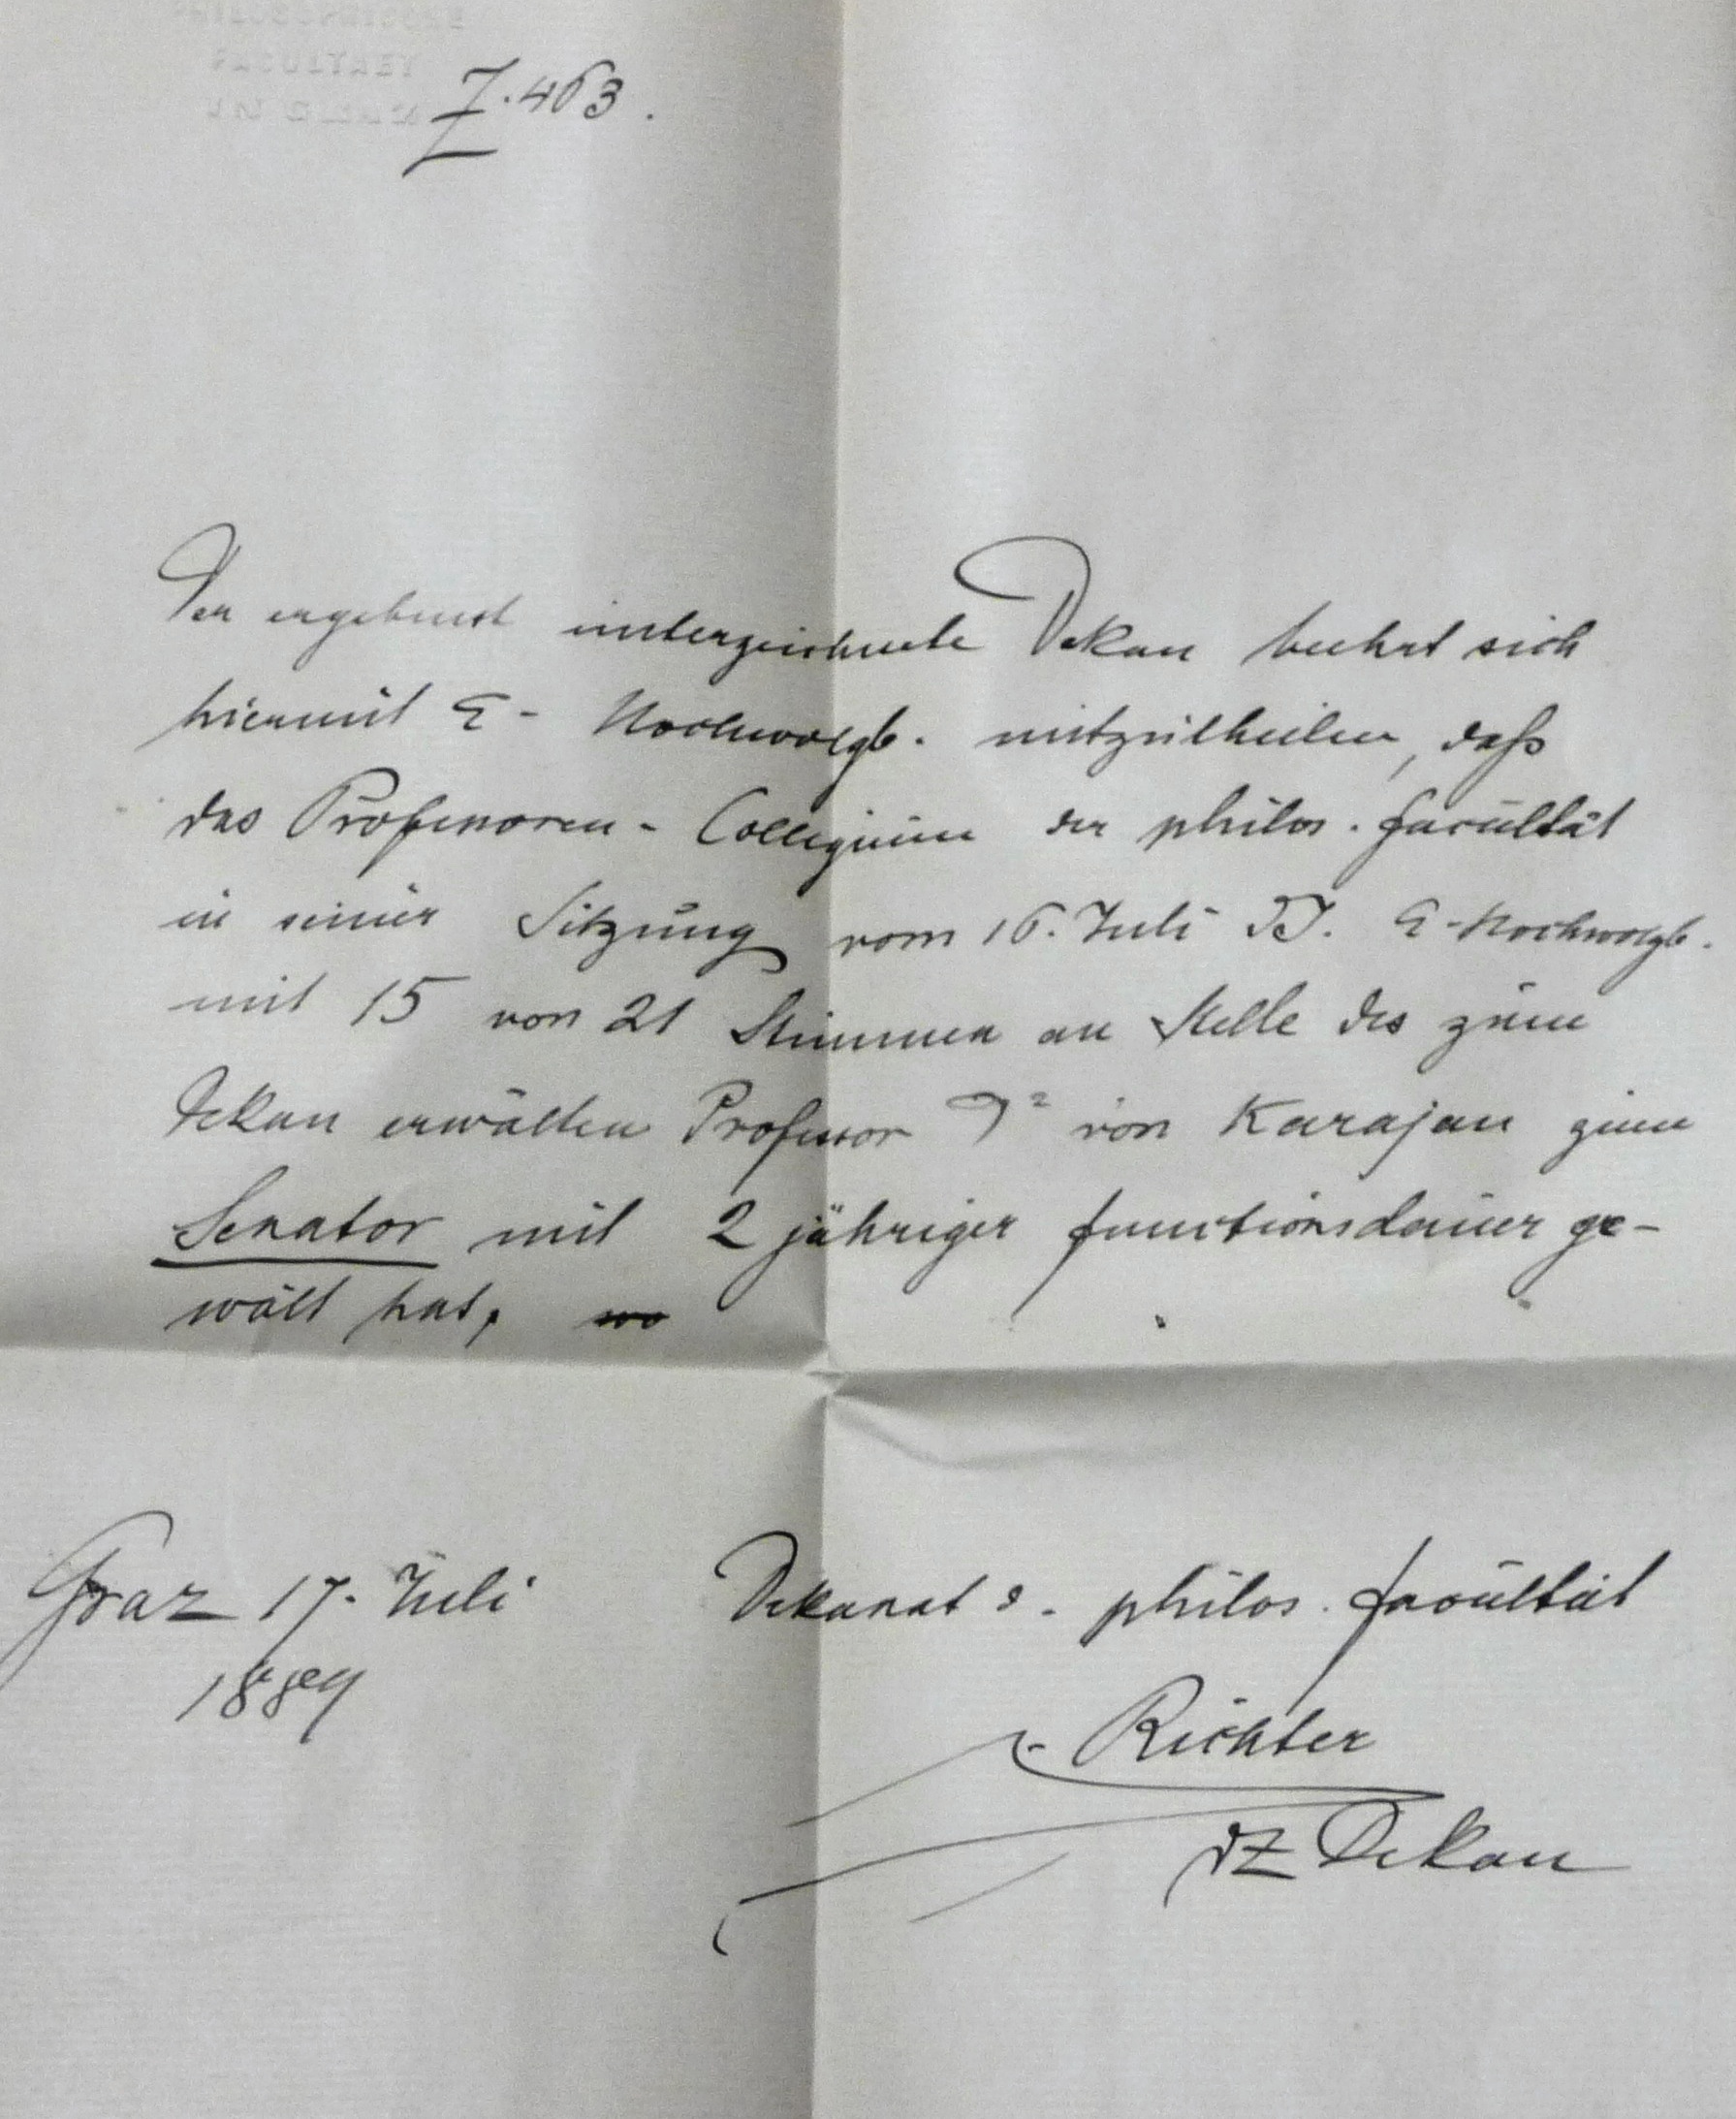 Z. 463.
Der ergebenst unterzeichnete Dekan beehrt sich
hiermit E- Hochwolgb. mitzutheilen, daß
das Professoren-Collegium der philos. Facultät
in seiner Sitzung vom 16. Juli E-Hochwolgb.
mit 15 von 21 Stimmen an Stelle des zum
Dekan erwälten Professor Dr von Karajan zum
Senator mit 2 jähriger Functionsdauer ge-
wält hat,
Graz 17. Juli Dekanat d. philos. Facultät
1889
Richter
dZ Dekan